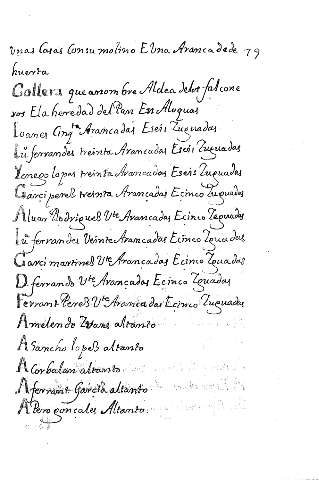 Unas Casas Con su molino E Una Arancada de 79
huerta
Gallera que a nombre Aldea delos falcone
ros E la heredad del Pan En Aluquas
Ioanes Cinqta Arancadas E seis Zuguadas
Lui ferrandes treinta Arancadas E seis Zuguadas
Yenego lopes treinta Arancadas E seis Zuguadas
Garci peres treinta Arancadas E cinco Zuguadas
Aluar Rodrigues Vte Arancadas E cinco Zuguadas
Lui ferrandes Veinte Arancadas E cinco Zguadas
Garci martines Vte Arancadas E cinco Zguadas
D ferrando Vte Arancadas E cinco Zuguadas
Ferrant Peres Vte Arancadas E cinco Zuguadas
A melendo altanto
A Sancho lopes altanto
A Corbalan altanto
A ferrant Garcia altanto
A Pero gonçales Altanto